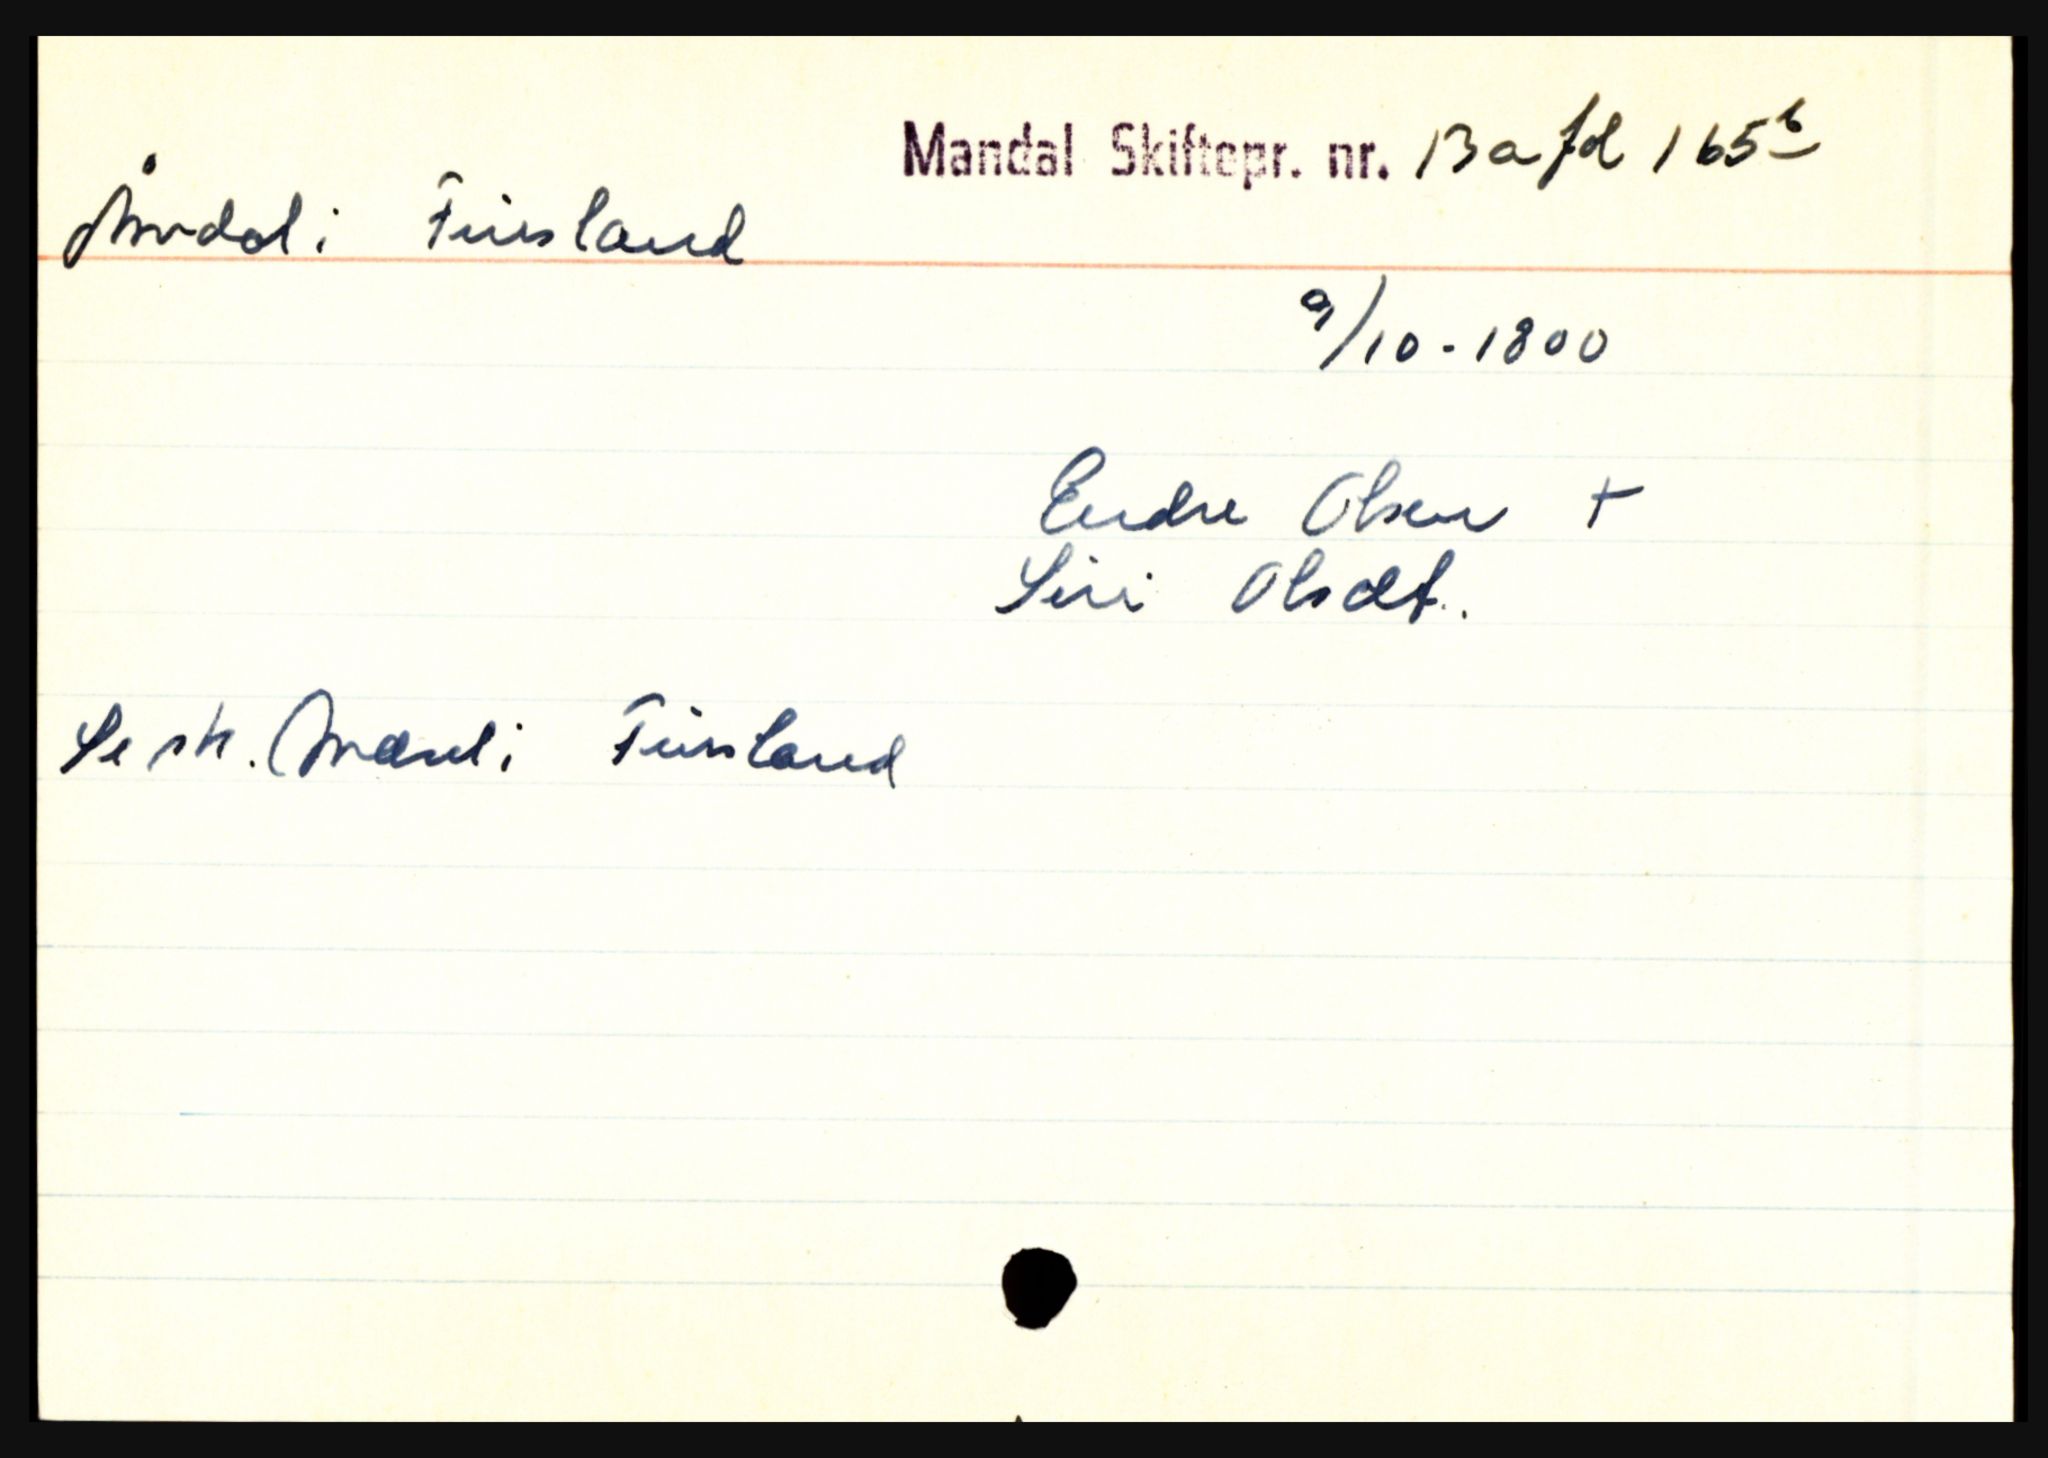 Mandal Skiftepr. nr. 13a fol 165b
Åmdal i Finsland
9/10-1800
Endre Olsen +
Siri Olsdt.
Se sk. Mæsel i Finsland